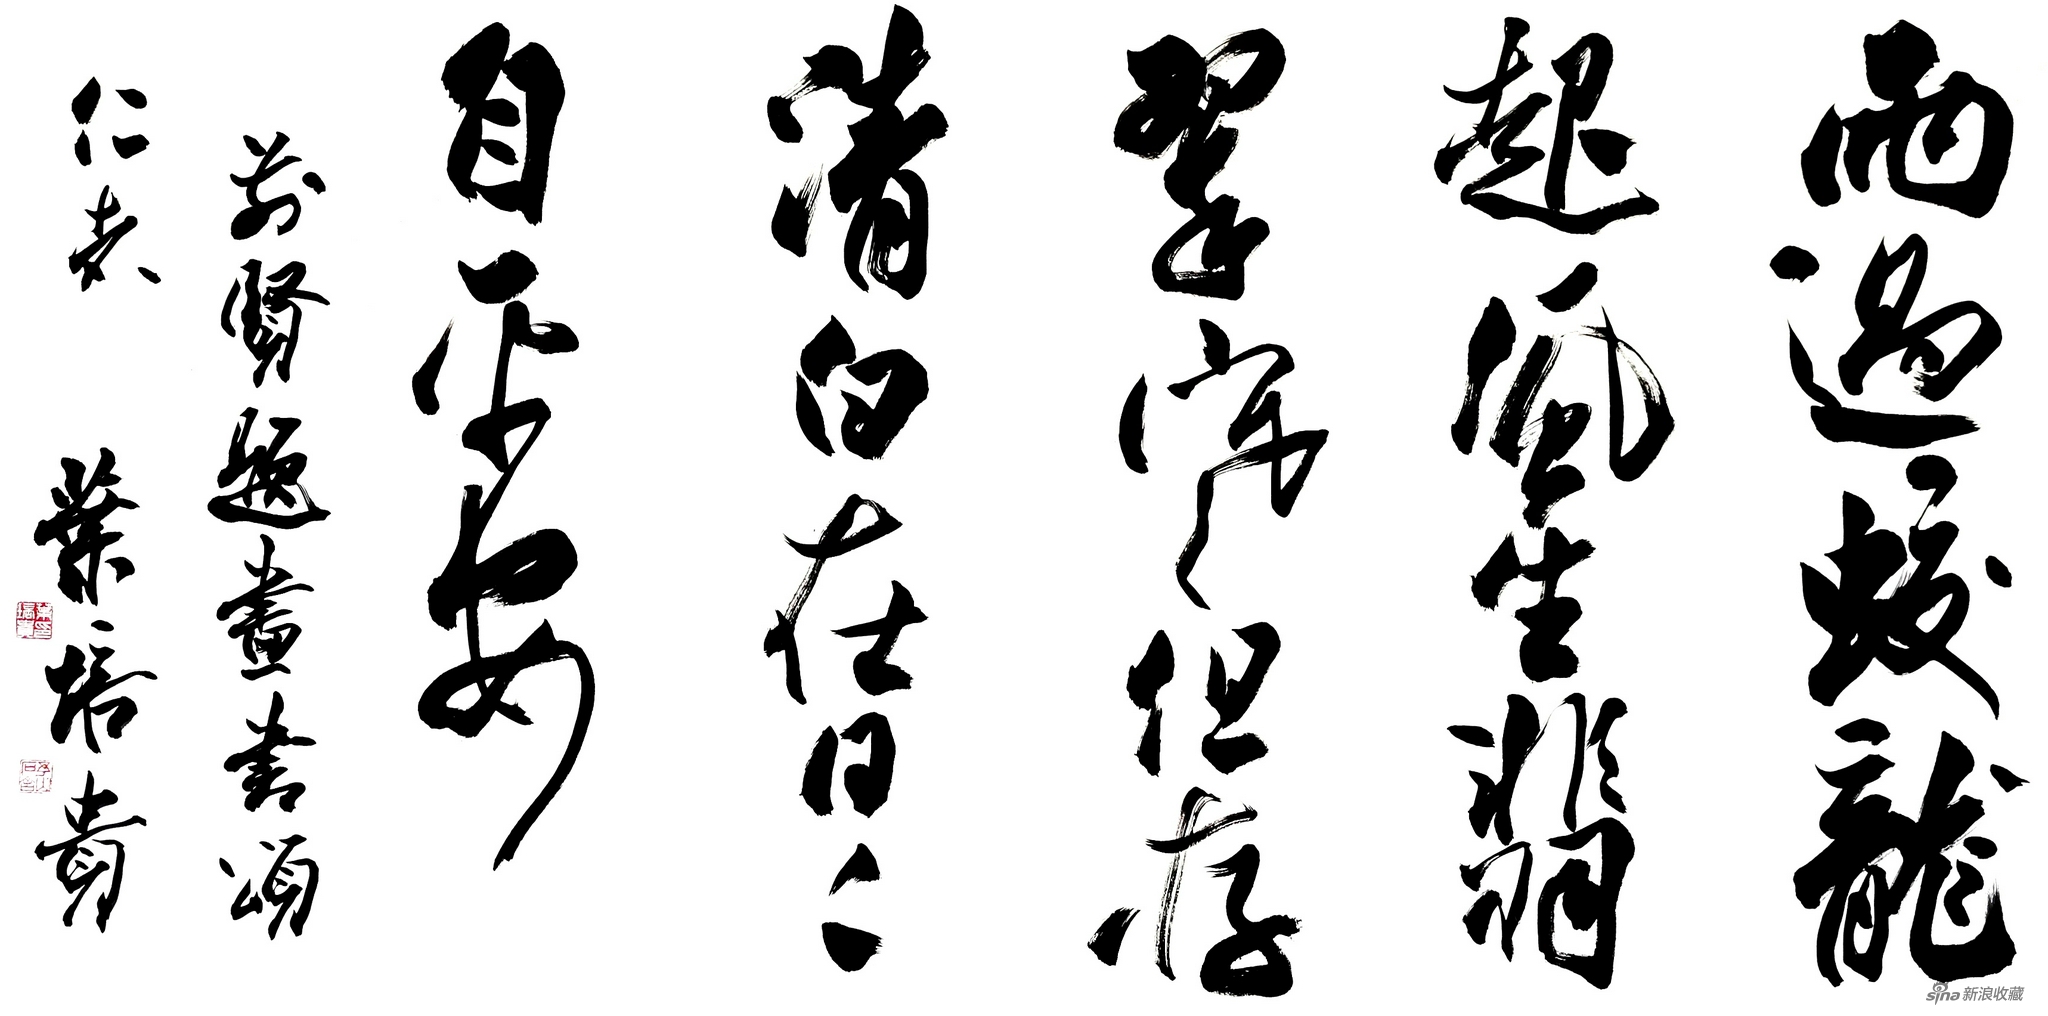 雨過蛟龍
起風生翡
翠寒但存
清白在日々
自平安
前賢題畫書頌
仁者 葉培貴
sina 新浪收藏